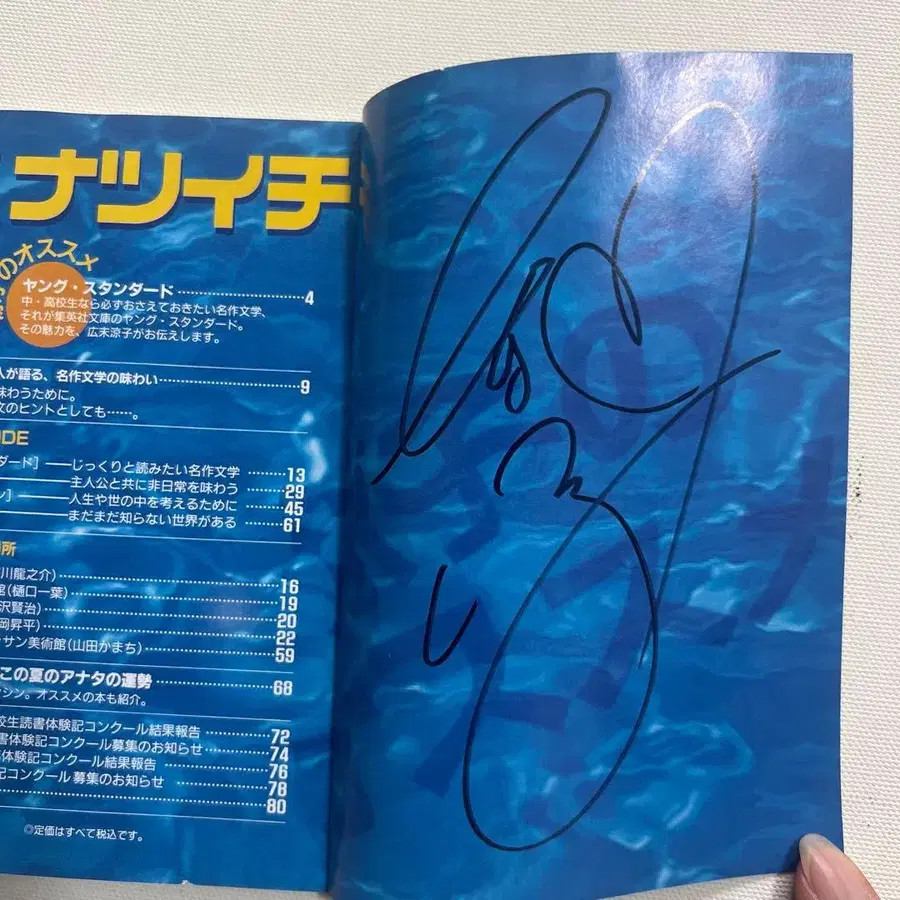 ナツイチ
のオススメ
ヤング・スタンダード 4
中・高校生なら必ずおさえておきたい名作文学、
それが集英社文庫のヤング・スタンダード。
その魅力を、広末涼子がお伝えします。
人が語る、名作文学の味わい 9
味わうために。
文のヒントとしても……。
UDE
ダード]——じっくりと読みたい名作文学 13
——主人公と共に非日常を味わう 29
ン]——人生や世の中を考えるために 45
——まだまだ知らない世界がある 61
場所
川龍之介) 16
館(樋口一葉) 19
沢賢治) 20
岡昇平) 22
ッサン美術館(山田かまち) 59
この夏のアナタの運勢 68
マシン。オススメの本も紹介。
校生読書体験記コンクール結果報告 72
書体験記コンクール募集のお知らせ 74
体験記コンクール結果報告 76
記コンクール募集のお知らせ 78
80
◎定価はすべて税込です。